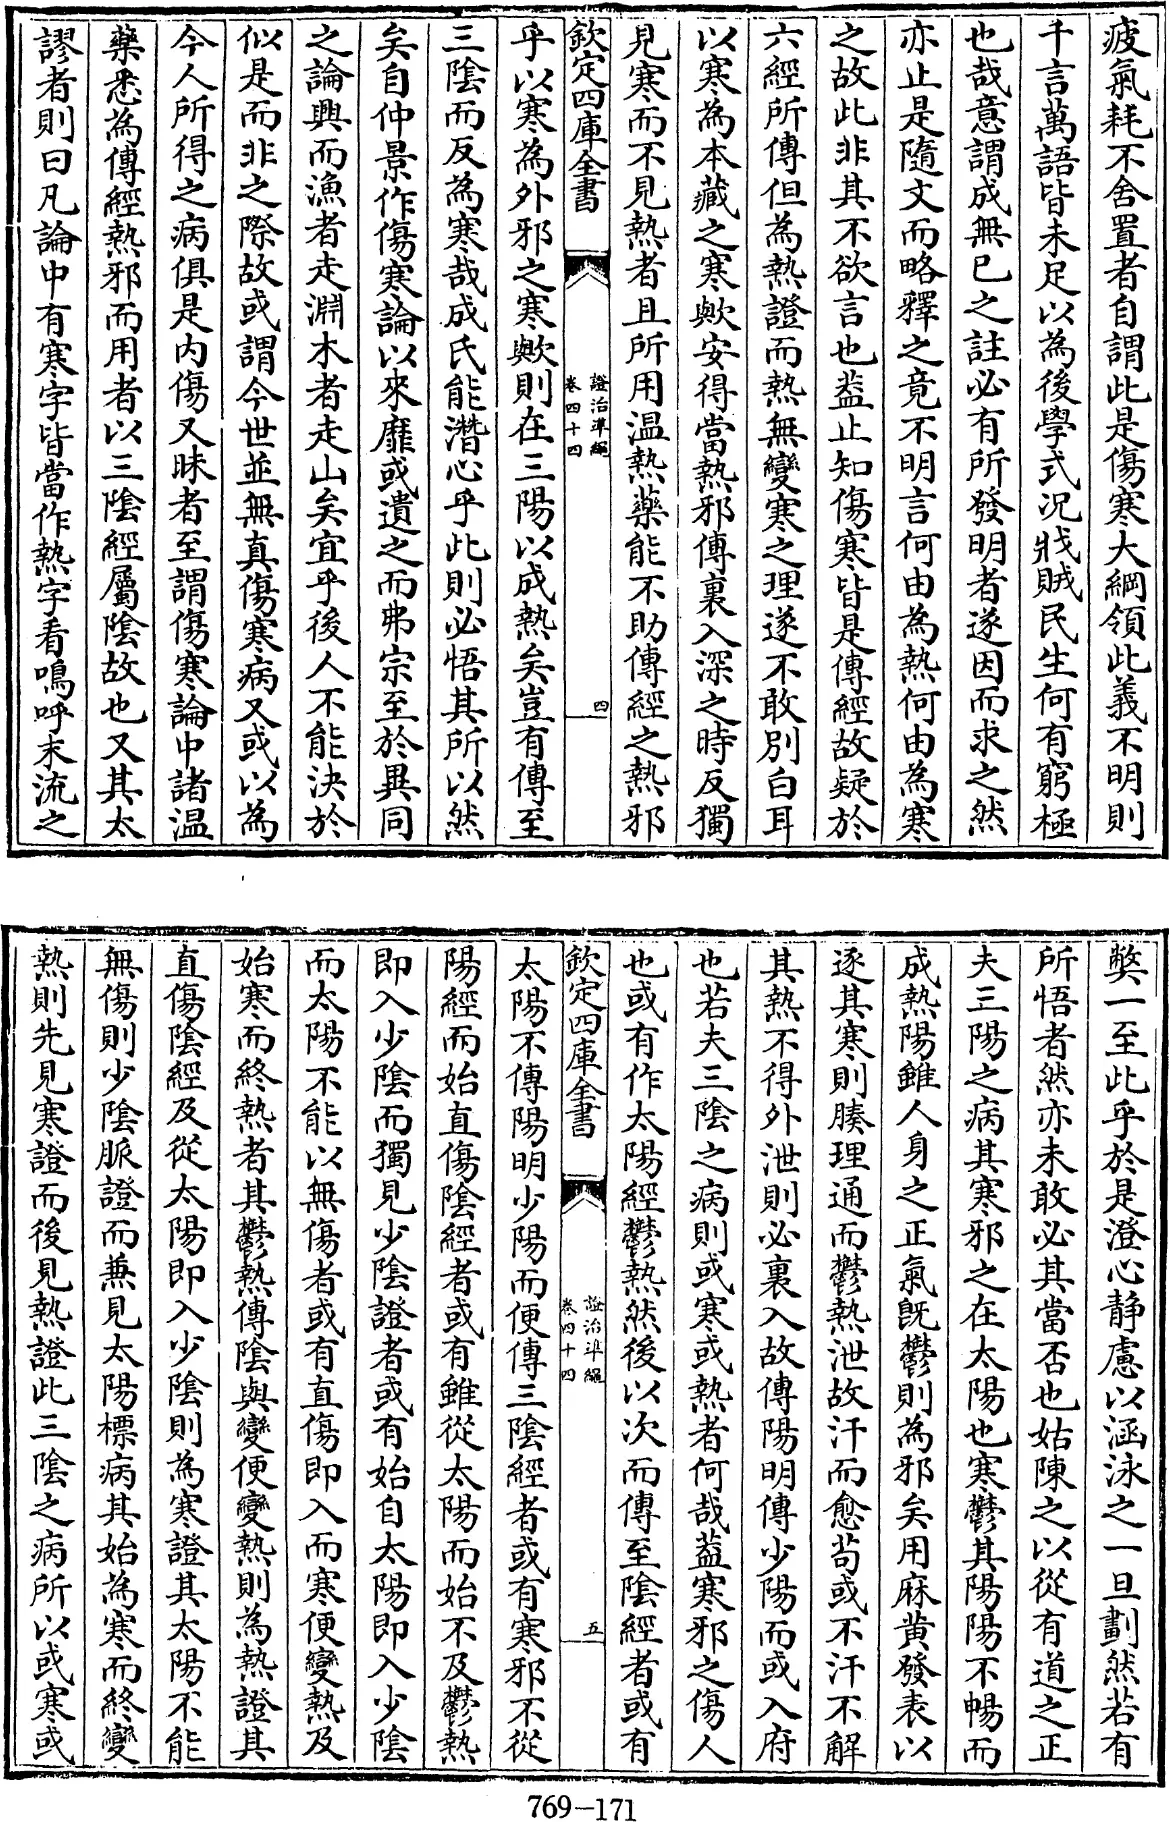 疲氣耗不舍置者自謂此是傷寒大綱領此義不明則
千言萬語皆未足以為後學式况戕賊民生何有窮極
也哉意謂成無已之註必有所發明者遂因而求之然
亦止是隨文而略釋之竟不明言何由為熱何由為寒
之故此非其不欲言也葢止知傷寒皆是傳經故疑於
六經所傳但為熱證而熱無變寒之理遂不敢別白耳
以寒為本藏之寒歟安得當熱邪傳裏入深之時反獨
見寒而不見熱者且所用温熱藥能不助傳經之熱邪
欽定四庫全書
證治準繩
卷四十四
四
乎以寒為外邪之寒歟則在三陽以成熱矣豈有傳至
三陰而反為寒哉成氏能潛心乎此則必悟其所以然
矣自仲景作傷寒論以來靡或遺之而弗宗至於異同
之論興而漁者走淵木者走山矣宜乎後人不能決於
似是而非之際故或謂今世並無真傷寒病又或以為
今人所得之病俱是内傷又昧者至謂傷寒論中諸温
藥悉為傳經熱邪而用者以三陰經屬陰故也又其太
謬者則曰凡論中有寒字皆當作熱字看嗚呼末流之
弊一至此乎於是澄心静慮以涵泳之一旦劃然若有
所悟者然亦未敢必其當否也姑陳之以從有道之正
夫三陽之病其寒邪之在太陽也寒鬱其陽陽不暢而
成熱陽雖人身之正氣既鬱則為邪矣用麻黄發表以
逐其寒則腠理通而鬱熱泄故汗而愈苟或不汗不解
其熱不得外泄則必裏入故傳陽明傳少陽而或入府
也若夫三陰之病則或寒或熱者何哉葢寒邪之傷人
也或有作太陽經鬱熱然後以次而傳至陰經者或有
欽定四庫全書
證治準繩
卷四十四
五
太陽不傳陽明少陽而便傳三陰經者或有寒邪不從
陽經而始直傷陰經者或有雖從太陽而始不及鬱熱
即入少陰而獨見少陰證者或有始自太陽即入少陰
而太陽不能以無傷者或有直傷即入而寒便變熱及
始寒而終熱者其鬱熱傳陰與變便變熱則為熱證其
直傷陰經及從太陽即入少陰則為寒證其太陽不能
無傷則少陰脈證而兼見太陽標病其始為寒而終變
熱則先見寒證而後見熱證此三陰之病所以或寒或
769-171